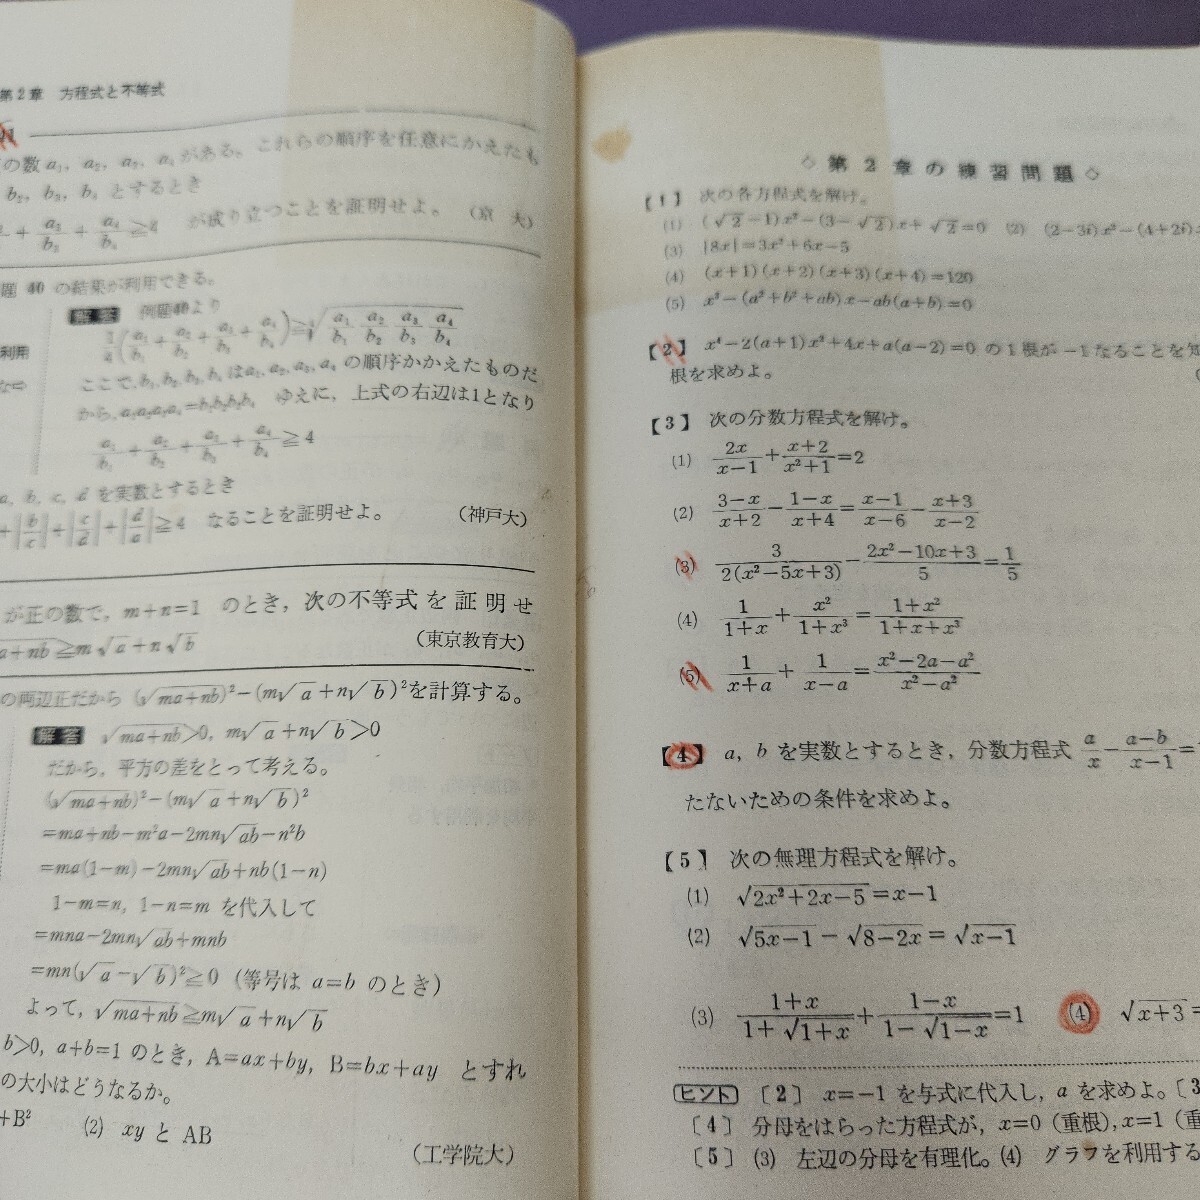 第2章 方程式と不等式
の数 a₁, a₂, a₃, a₄ がある。これらの順序を任意にかえたも
b₂, b₃, b₄ とするとき
+ a₃/b₃ + a₄/b₄ ≧ が成り立つことを証明せよ。 (京 大)
題 40 の結果が利用できる。
解答 例題40より
1/4(a₁/b₁+a₂/b₂+a₃/b₃+a₄/b₄)≧⁴√(a₁/b₁ a₂/b₂ a₃/b₃ a₄/b₄)
利用
ここで, b₁, b₂, b₃, b₄ は a₁, a₂, a₃, a₄ の順序かかえたものだ
から, a₁a₂a₃a₄=b₁b₂b₃b₄ ゆえに, 上式の右辺は1となり
a₁/b₁+a₂/b₂+a₃/b₃+a₄/b₄≧4
a, b, c, d を実数とするとき
+|b/c|+|c/d|+|d/a|≧4 なることを証明せよ。 (神戸大)
が正の数で, m+n=1 のとき, 次の不等式を証明せ
a+nb≧m√a+n√b (東京教育大)
の両辺正だから (√ma+nb)²−(m√a+n√b)²を計算する。
解答 √ma+nb>0, m√a+n√b>0
だから, 平方の差をとって考える。
(√ma+nb)²−(m√a+n√b)²
=ma+nb−m²a−2mn√ab−n²b
=ma(1−m)−2mn√ab+nb(1−n)
1−m=n, 1−n=m を代入して
=mna−2mn√ab+mnb
=mn(√a−√b)²≧0 (等号は a=b のとき)
よって, √ma+nb≧m√a+n√b
b>0, a+b=1 のとき, A=ax+by, B=bx+ay とすれ
の大小はどうなるか。
+B² (2) xy と AB
(工学院大)
◇ 第2章の練習問題 ◇
【1】 次の各方程式を解け。
(1) (√2−1)x²−(3−√2)x+√2=0 (2) (2−3i)x²−(4+2i)
(3) |8x|=3x²+6x−5
(4) (x+1)(x+2)(x+3)(x+4)=120
(5) x³−(a²+b²+ab)x−ab(a+b)=0
【2】 x⁴−2(a+1)x³+4x+a(a−2)=0 の1根が −1 なることを知
根を求めよ。
【3】 次の分数方程式を解け。
(1) 2x/(x−1)+(x+2)/(x²+1)=2
(2) (3−x)/(x+2)−(1−x)/(x+4)=(x−1)/(x−6)−(x+3)/(x−2)
(3) 3/2(x²−5x+3)−(2x²−10x+3)/5=1/5
(4) 1/(1+x)+x²/(1+x³)=(1+x²)/(1+x+x³)
(5) 1/(x+a)+1/(x−a)=(x²−2a−a²)/(x²−a²)
【4】 a, b を実数とするとき, 分数方程式 a/x−(a−b)/(x−1)=
たないための条件を求めよ。
【5】 次の無理方程式を解け。
(1) √2x²+2x−5=x−1
(2) √5x−1−√8−2x=√x−1
(3) (1+x)/(1+√1+x)+(1−x)/(1−√1−x)=1 (4) √x+3=
ヒント 〔2〕 x=−1 を与式に代入し, a を求めよ。〔3
〔4〕 分母をはらった方程式が, x=0 (重根), x=1 (重
〔5〕 (3) 左辺の分母を有理化。(4) グラフを利用する